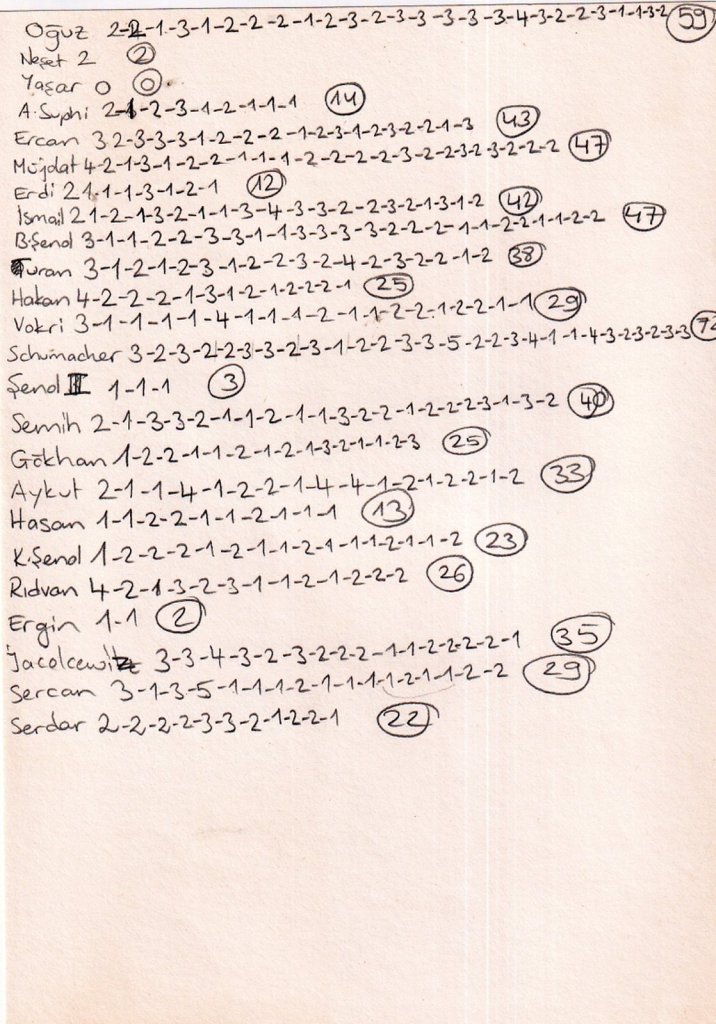 Oğuz 2-2-1-3-1-2-2-2-1-2-3-2-3-3-3-3-3-4-3-2-2-3-1-1-3-2 59
Neşet 2 2
Yaşar 0 0
A.Suphi 2-1-2-3-1-2-1-1-1 14
Ercan 3 2-3-3-3-1-2-2-2-1-2-3-1-2-3-2-2-1-3 43
Müjdat 4-2-1-3-1-2-2-1-1-1-2-2-2-2-3-2-2-3-2-3-2-2-2 47
Erdi 2 1-1-1-3-1-2-1 12
İsmail 2 1-2-1-3-2-1-1-3-4-3-3-2-2-3-2-1-3-1-2 42
B.Şenol 3-1-1-2-2-3-3-1-1-3-3-3-3-2-2-2-1-1-2-2-1-1-2-2 47
Turan 3-1-2-1-2-3-1-2-2-3-2-4-2-3-2-2-1-2 38
Hakan 4-2-2-2-1-3-1-2-1-2-2-2-1 25
Vokri 3-1-1-1-1-4-1-1-1-2-1-1-2-2-1-2-2-1-1 29
Schumacher 3-2-3-2-2-3-3-2-3-1-2-2-3-3-5-2-2-3-4-1-1-4-3-2-3-2-3-3 72
Şenol II 1-1-1 3
Semih 2-1-3-3-2-1-1-2-1-1-3-2-2-1-2-2-2-3-1-3-2 40
Gökhan 1-2-2-1-1-2-1-2-1-3-2-1-1-2-3 25
Aykut 2-1-1-4-1-2-2-1-4-4-1-2-1-2-2-1-2 33
Hasan 1-1-2-2-1-1-2-1-1-1 13
K.Şenol 1-2-2-2-1-2-1-1-2-1-1-1-2-1-1-2 23
Rıdvan 4-2-1-3-2-3-1-1-2-1-2-2-2 26
Ergin 1-1 2
3-3-4-3-2-3-2-2-2-1-1-2-2-2-2-1 35
Sercan 3-1-3-5-1-1-1-2-1-1-1-1-2-1-1-2-2 29
Serdar 2-2-2-2-3-3-2-1-2-2-1 22